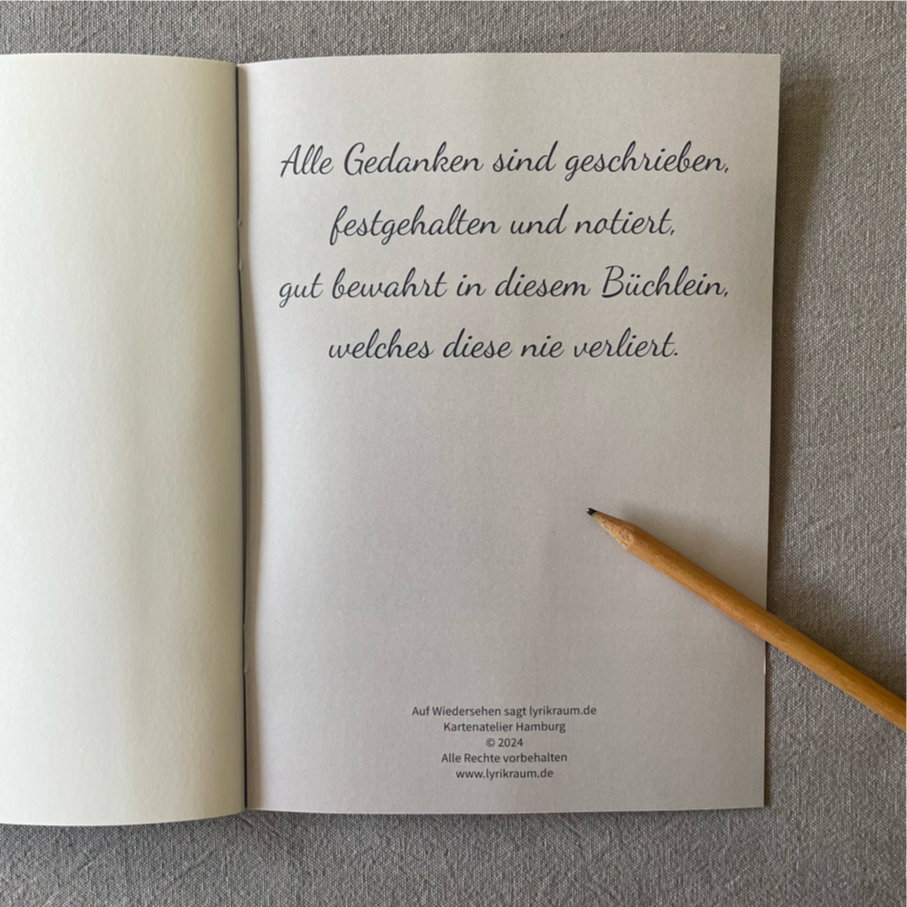 Alle Gedanken sind geschrieben,
festgehalten und notiert,
gut bewahrt in diesem Büchlein,
welches diese nie verliert.
Auf Wiedersehen sagt lyrikraum.de
Kartenatelier Hamburg
© 2024
Alle Rechte vorbehalten
www.lyrikraum.de